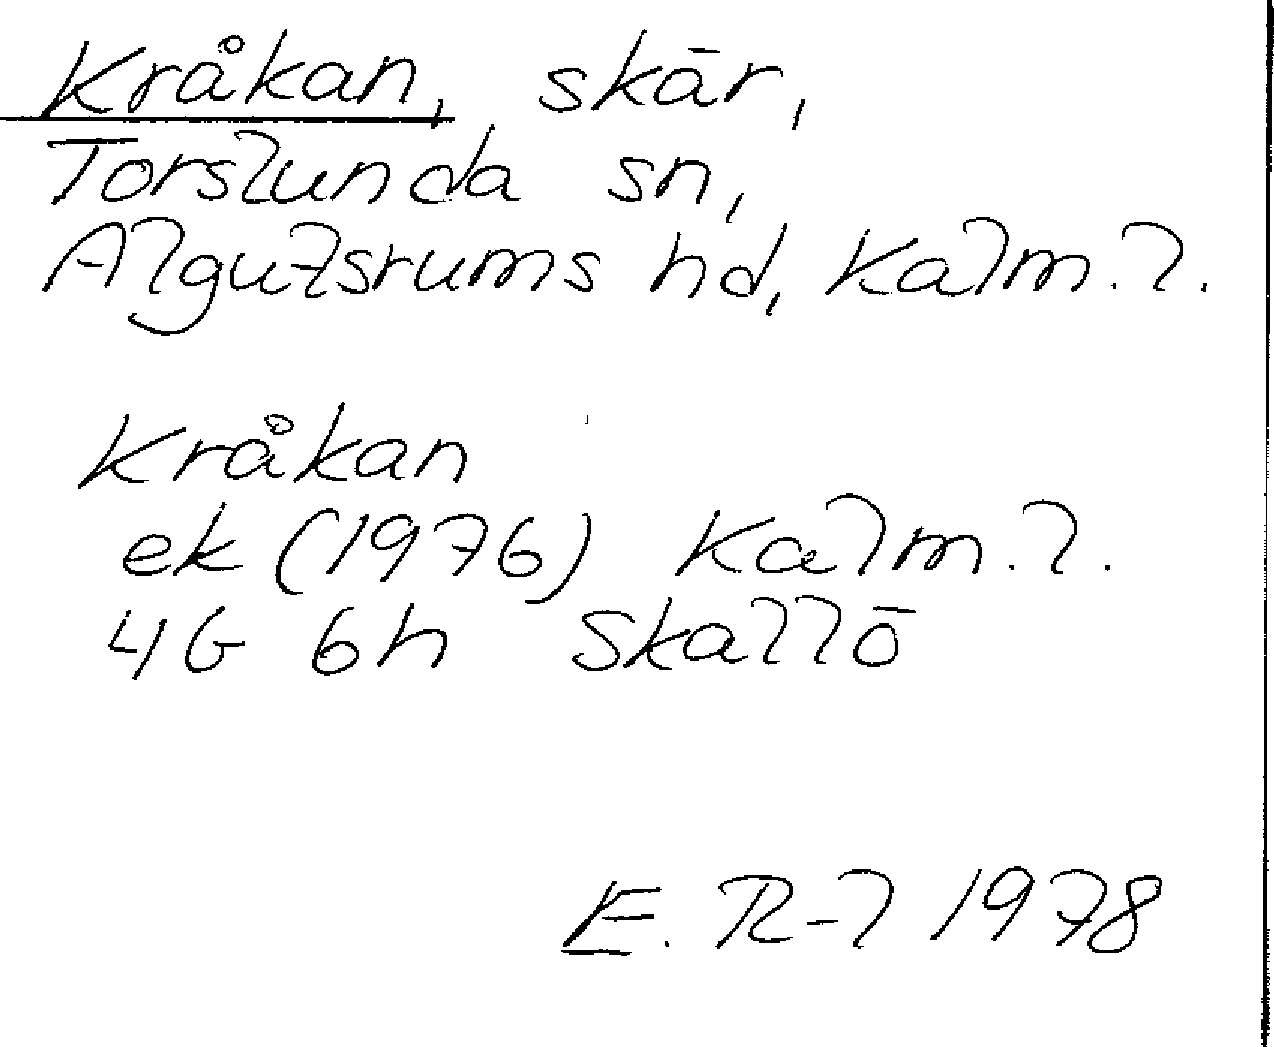 Kråkan, skär,
Torslunda sn,
Algutsrums hd, Kalm. l.
Kråkan
ek (1976) Kalm. l.
4G 6h Skallö
E. R-l 1978